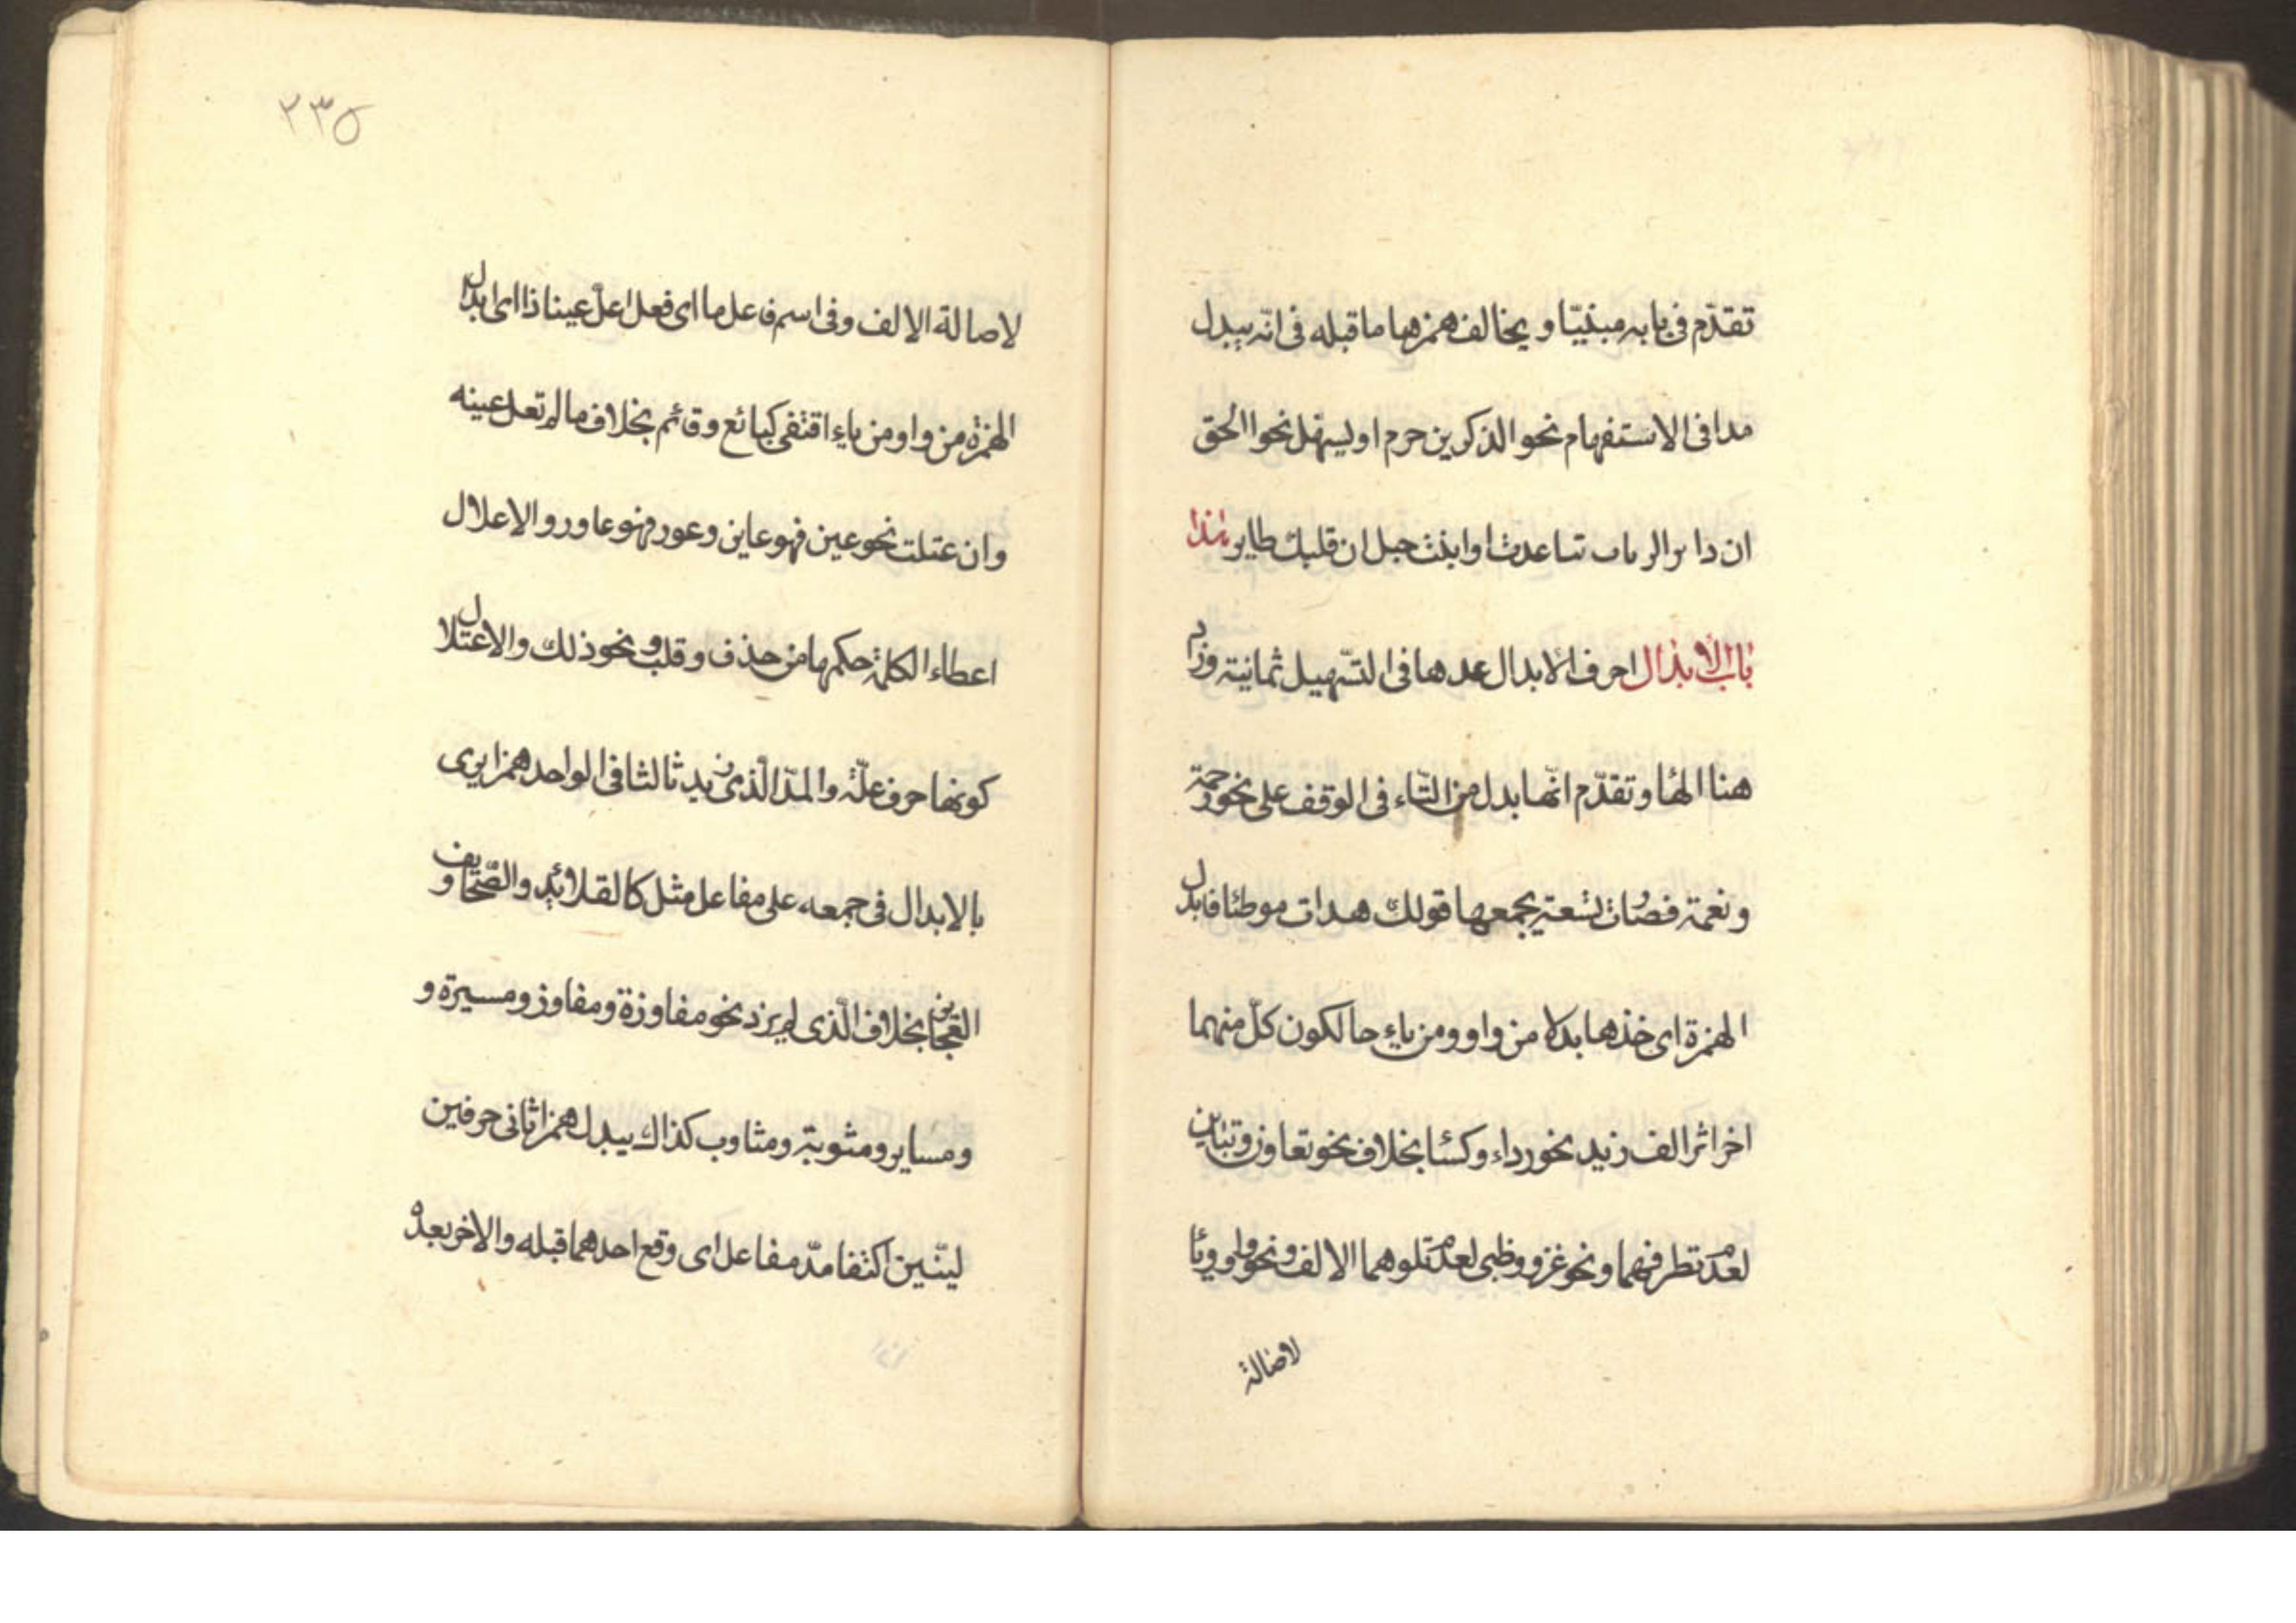 تقدّم في بابه مبنيّا و يخالف همزها ما قبله في انّه يبدل
مدا في الاستفهام نحو الذكرين حرم او ليسهل نحو الحق
ان دار الرباب تباعدت او انبت حبل ان قلبك طاير هذا
باب الابدال احرف الابدال عدها في التسهيل ثمانية وزاد
هنا الها و تقدّم انّها بدل من التّاء في الوقف على نحو رحمة
و نعمة فصارت تسعة يجمعها قولك هدات موطئا فابدل
الهمزة اى خذها بدلا من واو ومن ياءٍ حالكون كلّ منهما
اخر اثر الف زيد نحو رداء وكسا بخلاف نحو تعاون وتباين
لعدم تطرفهما و نحو غزو وظبى لعدم تلوهما الالف و نحو واو وئا
لاصالة
٢٣۵
لاصالة الالف وفى اسم فاعل ما اى فعل اعلّ عينا ذا اى ابدل
الهمزة من واو ومن ياءٍ اقتفى كبائع وقائم بخلاف ما لم تعل عينه
وان عتلت نحو عين فهو عاين وعور فهو عاور والاعلال
اعطاء الكلمة حكمها من حذف و قلب و نحو ذلك والاعتلال
كونها حرف علّة والمدّ الّذى زيد ثالثا فى الواحد همزا يرى
بالابدال فى جمعه على مفاعل مثل كالقلائد والصّحايف و
العجاين بخلاف الّذى لم يزد نحو مفاوزة ومفاوز ومسيرة و
ومساير ومثوبة ومثاوب كذاك يبدل همزا ثانى حرفين
ليّنين اكتنفا مدّ مفاعل اى وقع احدهما قبله والاخر بعده